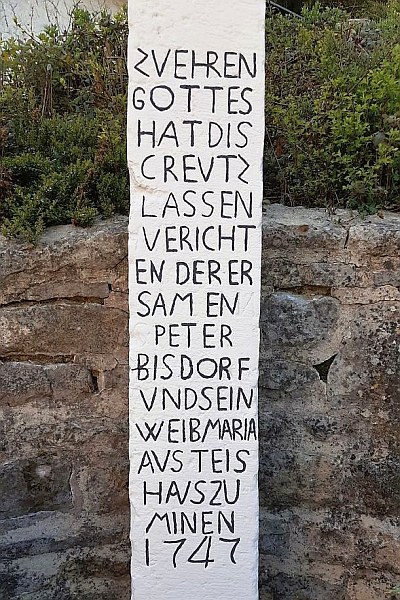 ZVEHREN
GOTTES
HATDIS
CREVTZ
LASSEN
VERICHT
EN DER ER
SAM EN
PETER
BISDORF
VNDSEIN
WEIBMARIA
AVSTEIS
HAVSZU
MINEN
1747